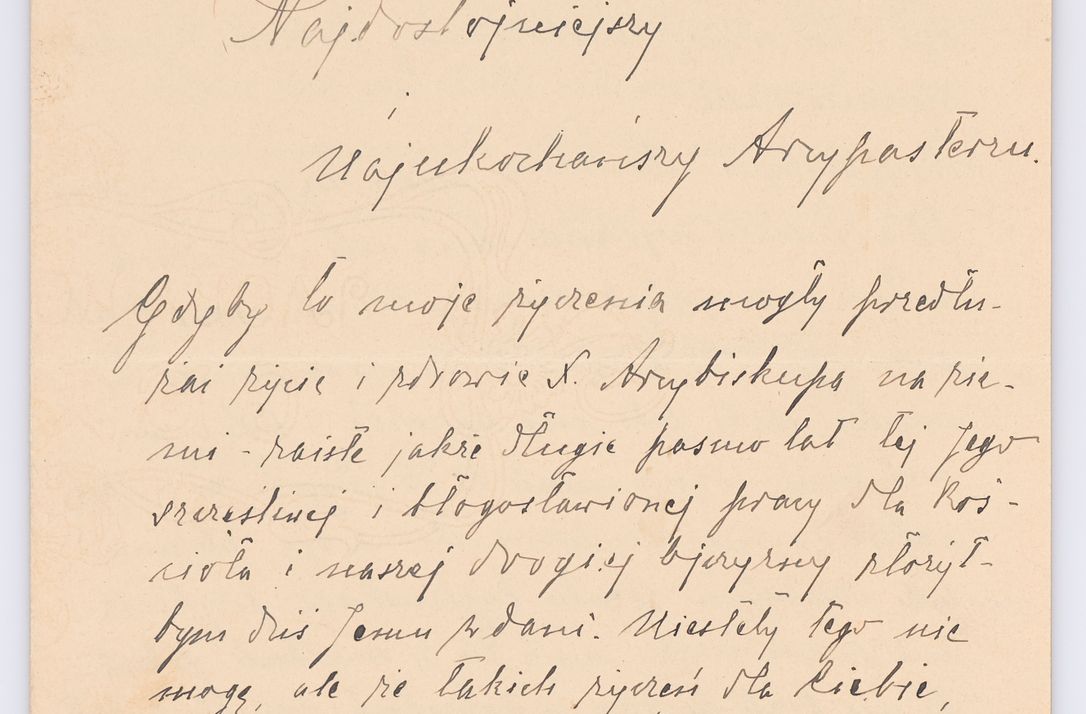 Najdostojniejszy
i
Najukochańszy Arcypasterzu.
Gdyby to moje życzenia mogły przedłu-
żać życie i zdrowie X. Arcybiskupa na zie-
mi - zaiste jakże długie pasmo lat tej Jego
szczęśliwej i błogosławionej pracy dla Koś-
cioła i naszej drogiej Ojczyzny złożył-
bym dziś Jemu w dani. Niestety tego nie
mogę, ale że takich życzeń dla Ciebie,